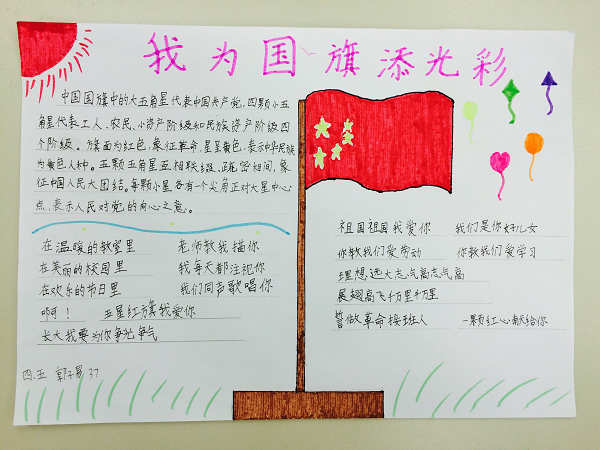 我为国旗添光彩
中国国旗中的大五角星代表中国共产党，四颗小五
角星代表工人、农民、小资产阶级和民族资产阶级四
个阶级。旗面为红色，象征革命，星呈黄色，表示中华民族
为黄色人种。五颗五角星互相联缀、疏密相间，象
征中国人民大团结。每颗小星各有一个尖角正对大星中心
点，表示人民对党的向心之意。
在温暖的教室里 老师教我描你
在美丽的校园里 我每天都注视你
在欢乐的节日里 我们同声歌唱你
啊！ 五星红旗我爱你
长大我要为你争光争气
四.五 郭子易 37
祖国祖国我爱你 我们是你好儿女
你教我们爱劳动 你教我们爱学习
理想远大志气高志气高
展翅高飞千万里千万里
誓做革命接班人 一颗红心献给你